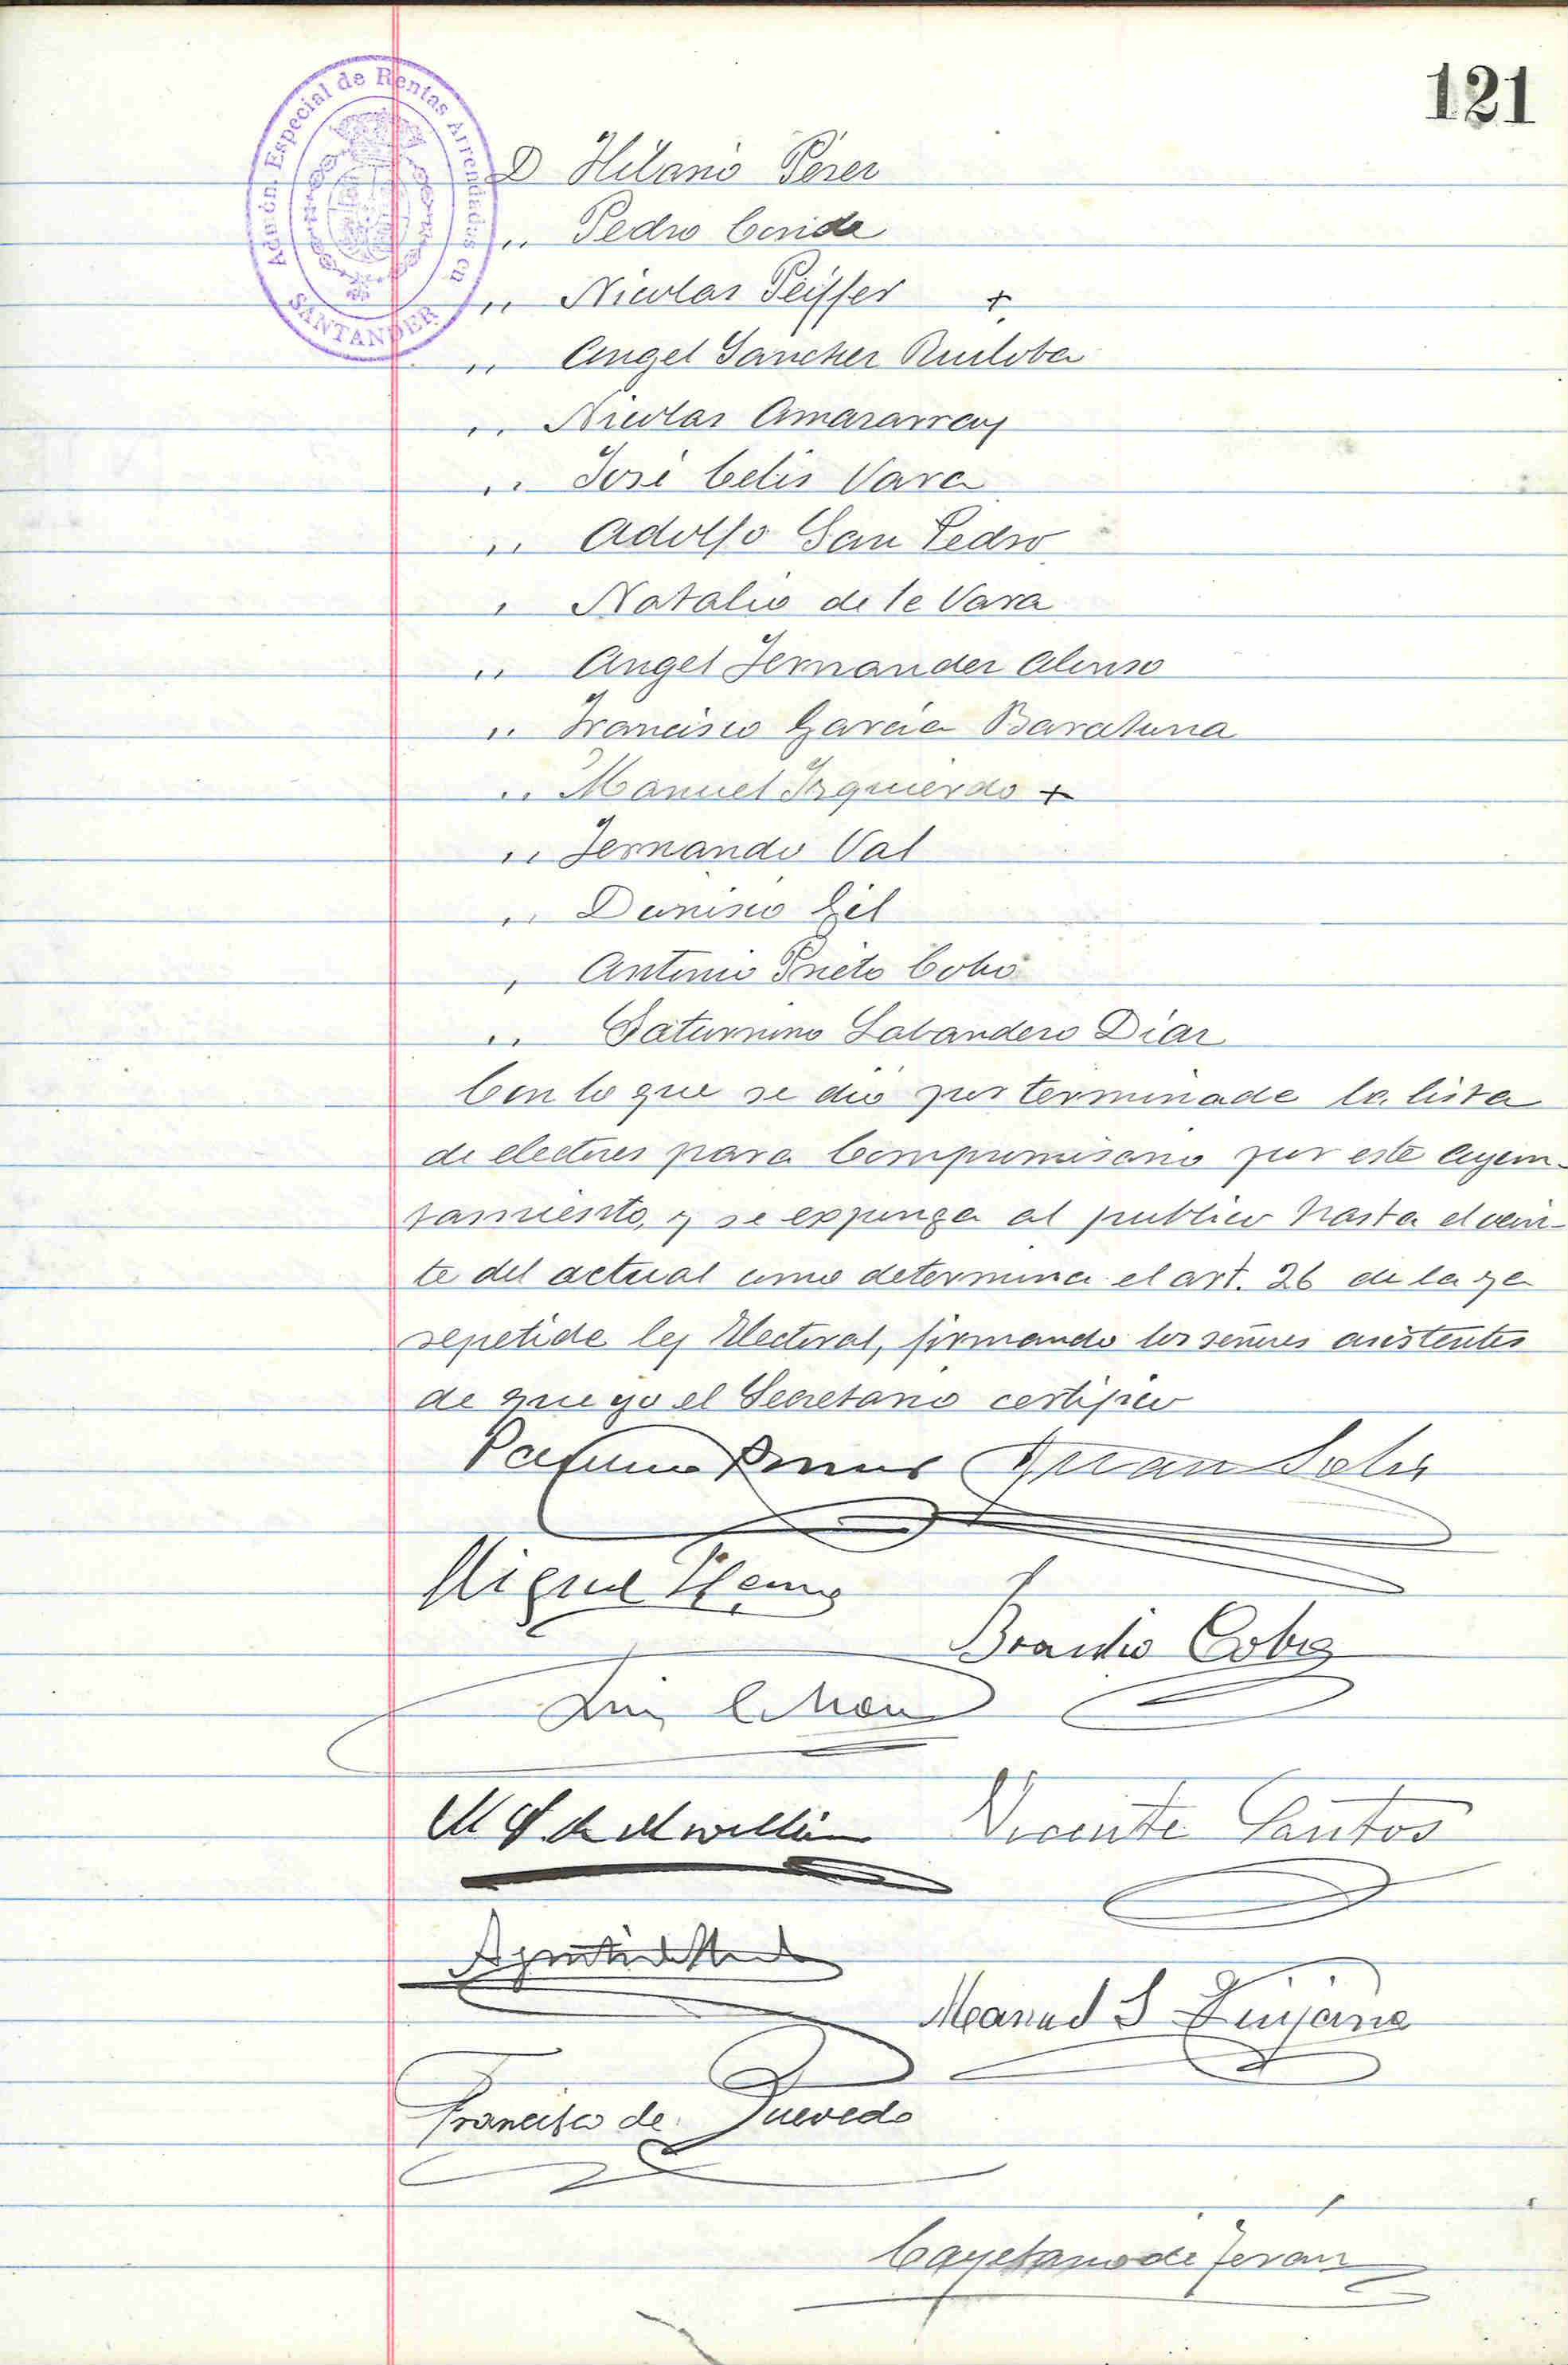 121
Admón. Especial de Rentas Arrendadas en
SANTANDER
D Hilario Pérez
,, Pedro Conde
,, Nicolas Peiffer +
,, Angel Sanchez Ruiloba
,, Nicolas Amazarray
,, José Celis Vara
,, Adolfo San Pedro
, Natalio de la Vara
,, Angel Fernandez Alonso
,, Francisco Garcia
,, Manuel Izquierdo +
,, Fernando Val
,, Dunisio Gil
, Antonio Prieto Cobo
,, Saturnino Labandero Díaz
Con lo que se dió por terminada la lista
de electores para Compromisario por este Ayun-
tamiento, y se exponga al publico hasta el vein-
te del actual como determina el art. 26 de la ya
repetida ley Electoral, firmando los señores asistentes
de que yo el Secretario certifico
Juan Solis
Miguel
Braulio Cobo
Luis
Vicente Santos
Manuel S Quijano
Francisco de Quevedo
Cayetano de Terán